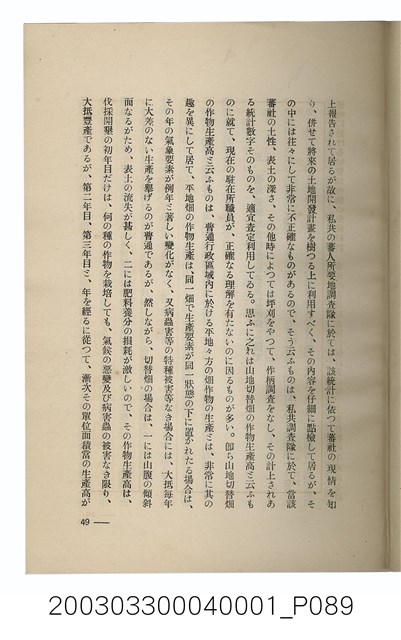 上報告されて居るが故に、私共の蕃人所要地調査隊に於ては、該統計に依つて蕃社の現情を知
り、併せて將來の土地開發計畫を樹つる上に利用すべく、その內容を仔細に點檢して居るが、そ
の中には往々にして非常に不正確なものがあるので、そう云ふものは、私共調査隊に於て、當該
蕃社の土性、表土の深さ、その他時によつては坪刈をやつて、作柄調査をなし、その計上されあ
る統計數字そのものを、適宜査定利用してゐる。思ふに之れは山地切替畑の作物生產高と云ふも
のに就て、現在の駐在所職員が、正確なる理解を有たないのに因るものが多い。卽ち山地切替畑
の作物生產高と云ふものは、普通行政區域內に於ける平地々方の畑作物の生產とは、非常に其の
趣を異にして居て、平地畑の作物生產は、同一畑で生產要素が同一狀態の下に置かれたる場合は、
その年の氣象要素が例年と著しい變化がなく、又病蟲害等の特種被害等なき場合には、大抵每年
に大差のない生產を擧げるのが普通であるが、然しながら、切替畑の場合は、一には山腹の傾斜
面なるがため、表土の流失が甚しく、二には肥料養分の損耗が激しいので、その作物生產高は、
伐採開墾の初年目だけは、何の種の作物を栽培しても、氣候の惡變及び病害蟲の被害なき限り、
大抵豐產であるが、第二年目、第三年目と、年を經るに從つて、漸次その單位面積當の生產高が
49
200303300040001_P089